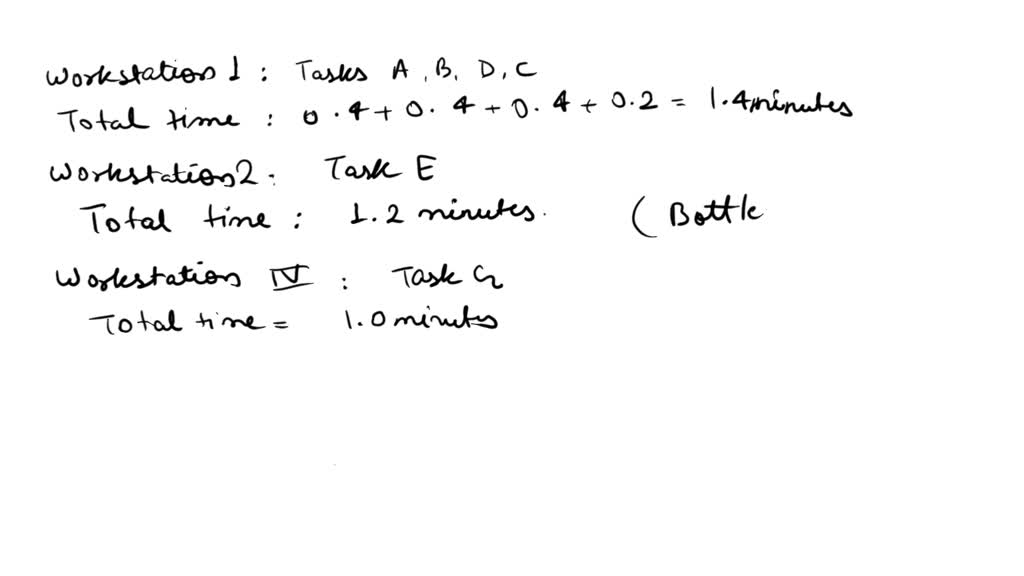 Workstation 1 : Tasks A, B, D, C
Total time : 0.4 + 0.4 + 0.4 + 0.2 = 1.4 minutes
Workstation 2 : Task E
Total time : 1.2 minutes. (Bottle
Workstation IV : Task G
Total time = 1.0 minutes